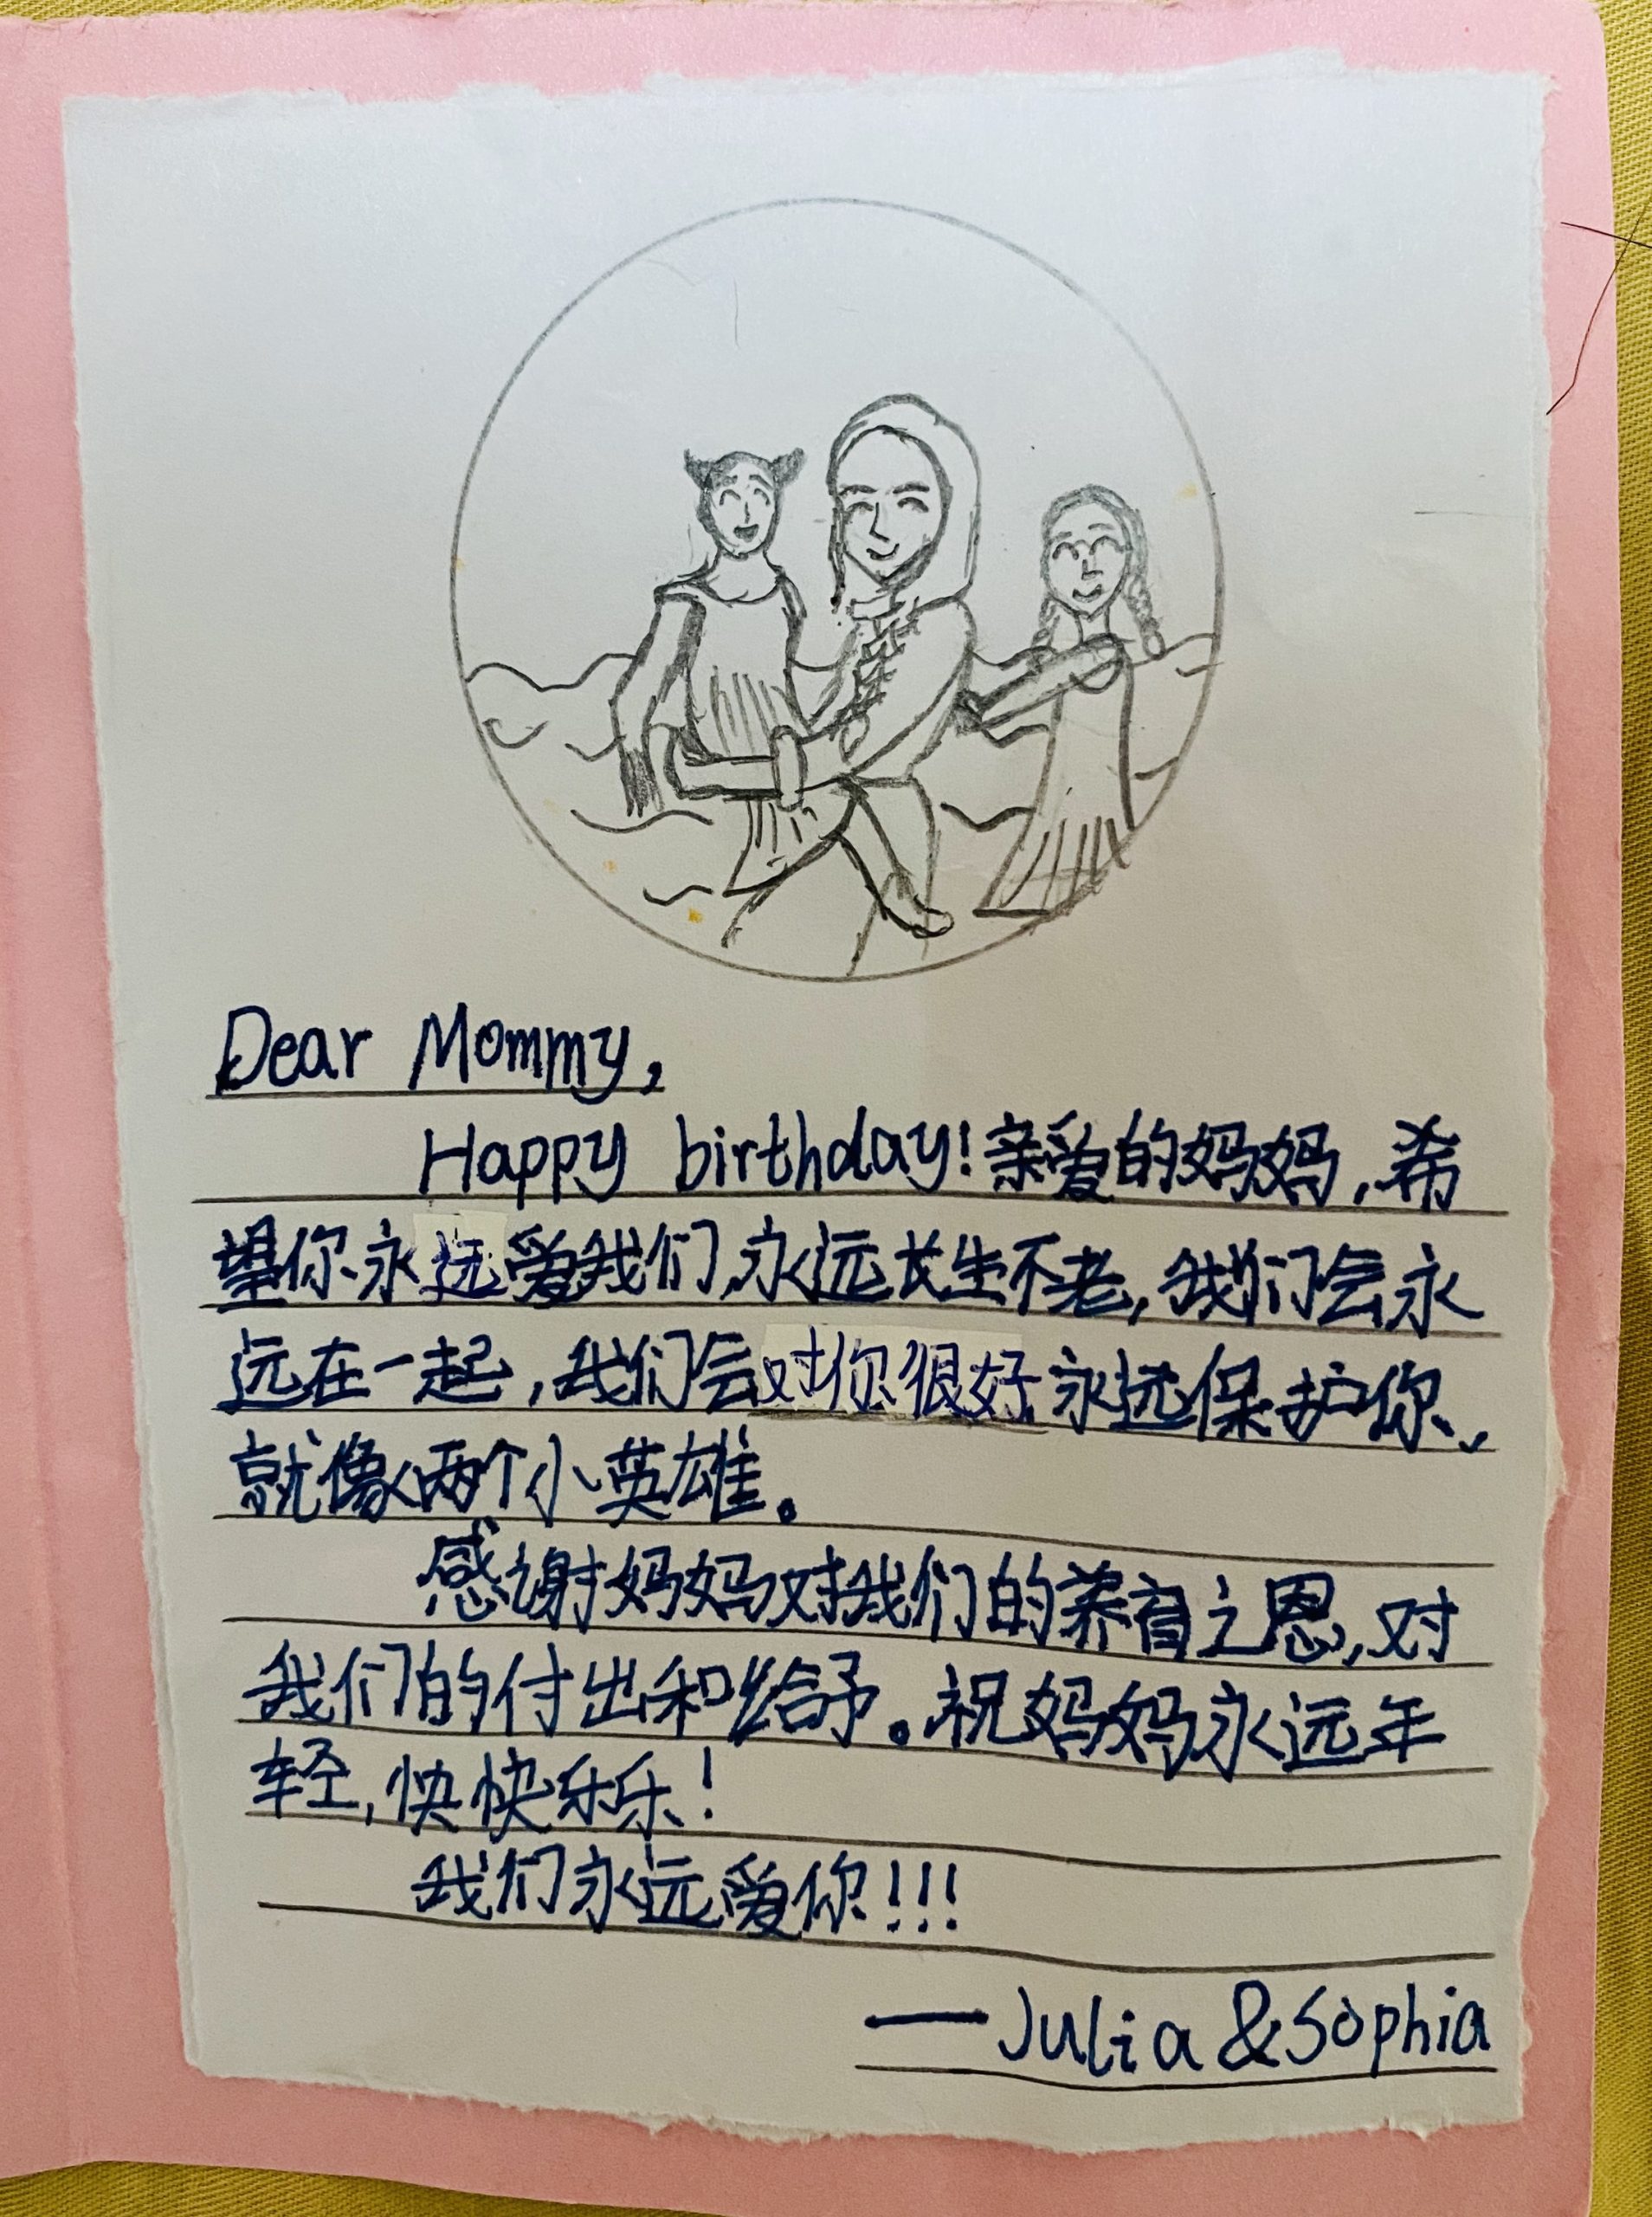 Dear Mommy,
Happy birthday!亲爱的妈妈,希
望你永远爱我们,永远长生不老,我们会永
远在一起,我们会对你很好,永远保护你、
就像两个小英雄。
感谢妈妈对我们的养育之恩,对
我们的付出和给予。祝妈妈永远年
轻,快快乐乐!
我们永远爱你!!!
—Julia & Sophia